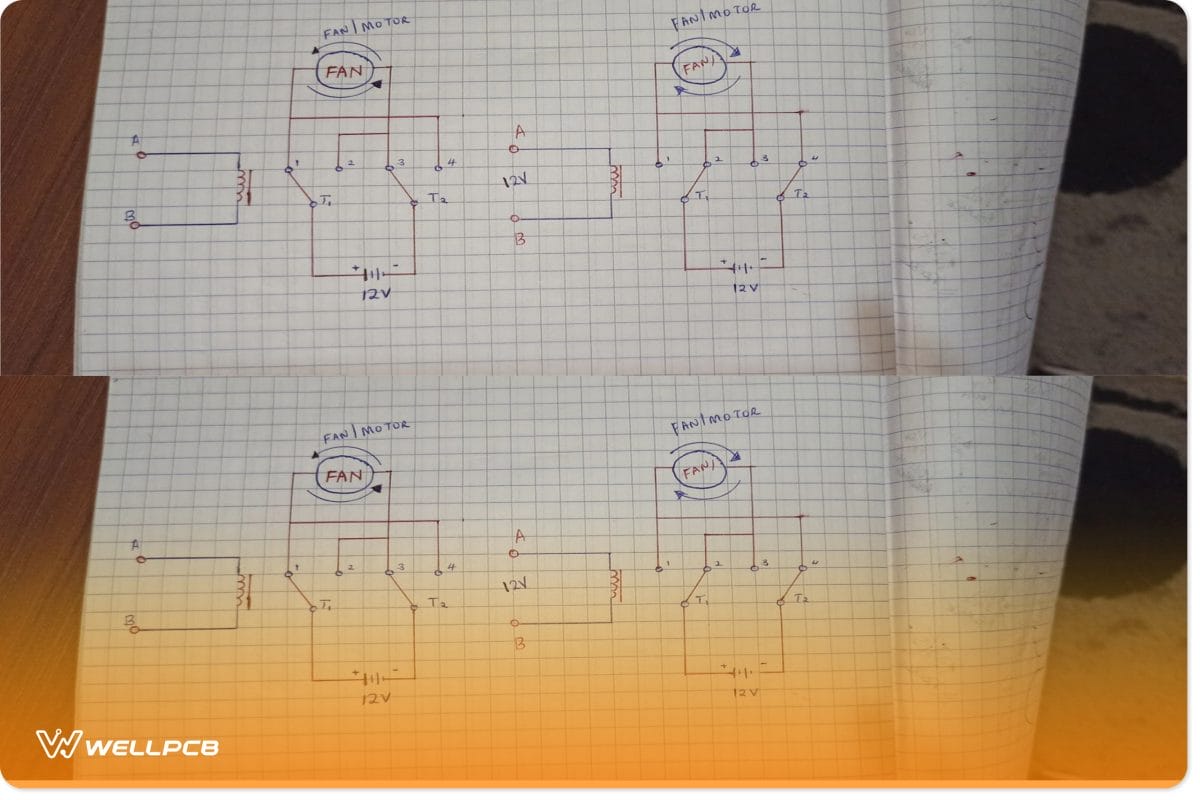 FAN/MOTOR
FAN/MOTOR
FAN
FAN
A
A
1
2
3
4
1
2
3
4
12V
T1
T2
T1
T2
B
B
+
-
+
-
12V
12V
FAN/MOTOR
FAN/MOTOR
FAN
FAN
A
A
1
2
3
4
1
2
3
4
12V
T1
T2
T1
T2
B
B
+
-
+
-
12V
12V
WELLPCB